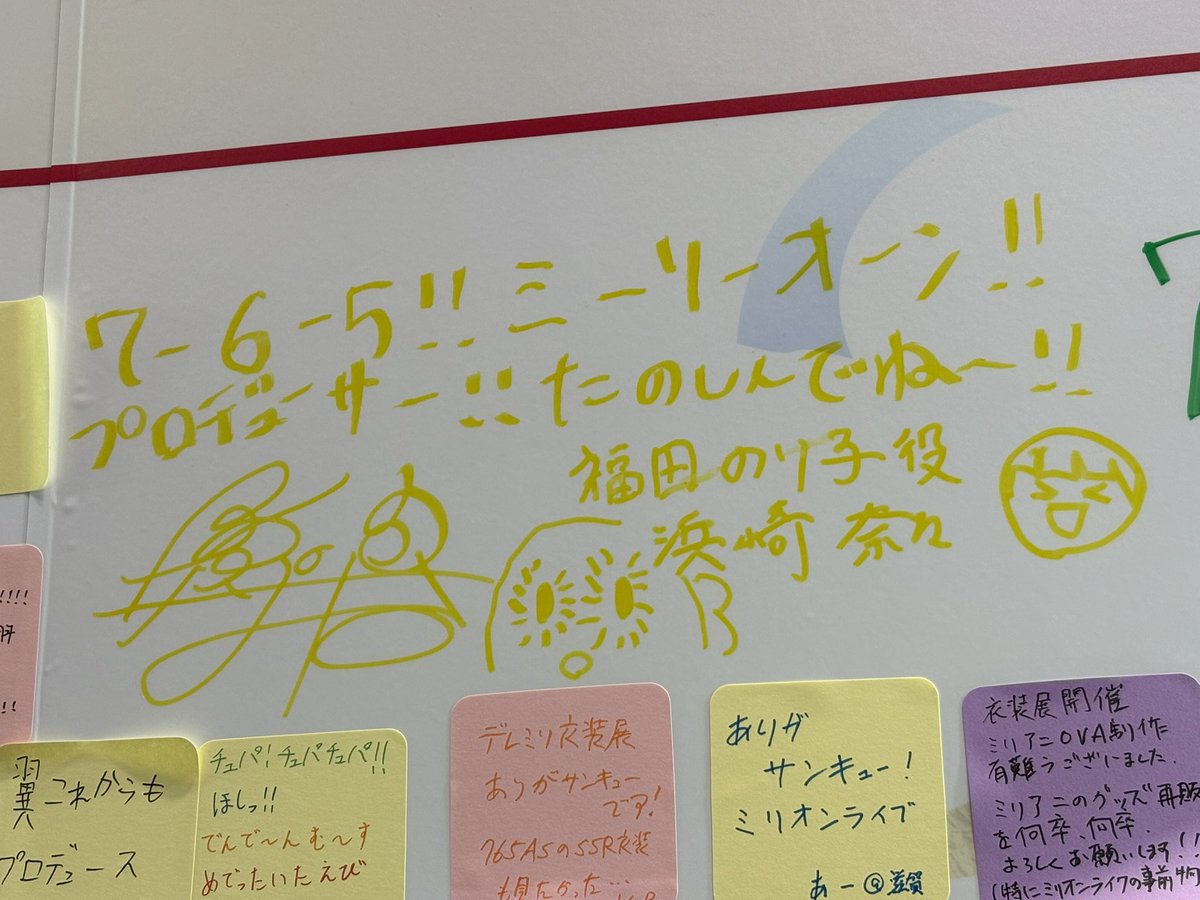 7-6-5!! ミーリーオーン!!
プロデューサー!! たのしんでね〜!!
福田のり子役
浜崎奈々
!!!!
!!
翼これからも
プロデュース
チュパ!チュパチュパ!!
ほしっ!!
でんで〜んむ〜す
めでったいたえび
デレミリ衣装展
ありがサンキュー
です!
765ASのSSR衣装
も見たかった…
ありが
サンキュー!
ミリオンライブ
あー@滋賀
衣装展開催
ミリアニOVA制作
有難うございました.
ミリアニのグッズ再販
を何卒、何卒.
よろしくお願いします!!
(特にミリオンライブの事前物